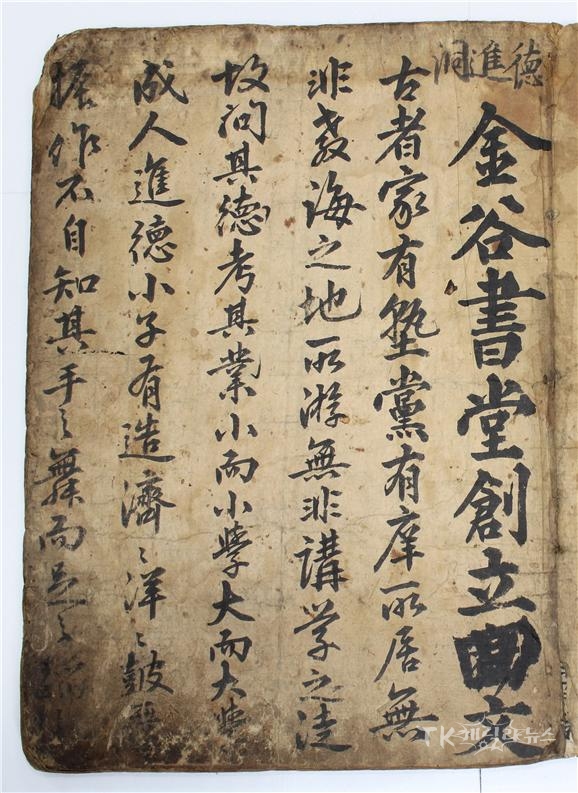 德進洞
金谷書堂創立文
古者家有塾黨有庠所居無
非教誨之地所游無非講学之徒
故问其德考其業小而小學大而大學
成人進德小子有造濟〻洋〻皷
振作不自知其手之舞而足之蹈
TK게릴라뉴스